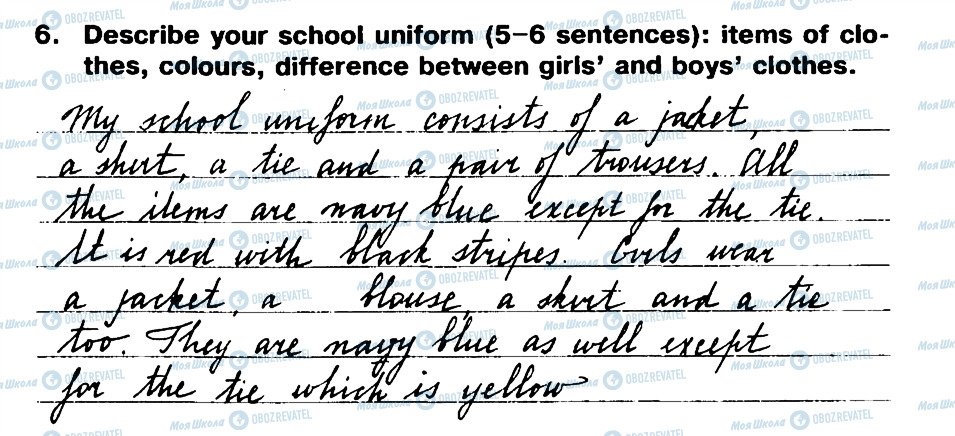 6. Describe your school uniform (5–6 sentences): items of clo-
thes, colours, difference between girls' and boys' clothes.
My school uniform consists of a jacket,
a shirt, a tie and a pair of trousers. All
the items are navy blue except for the tie.
It is red with black stripes. Girls wear
a jacket, a blouse, a skirt and a tie
too. They are navy blue as well except
for the tie which is yellow
Моя Школа OBOZREVATEL